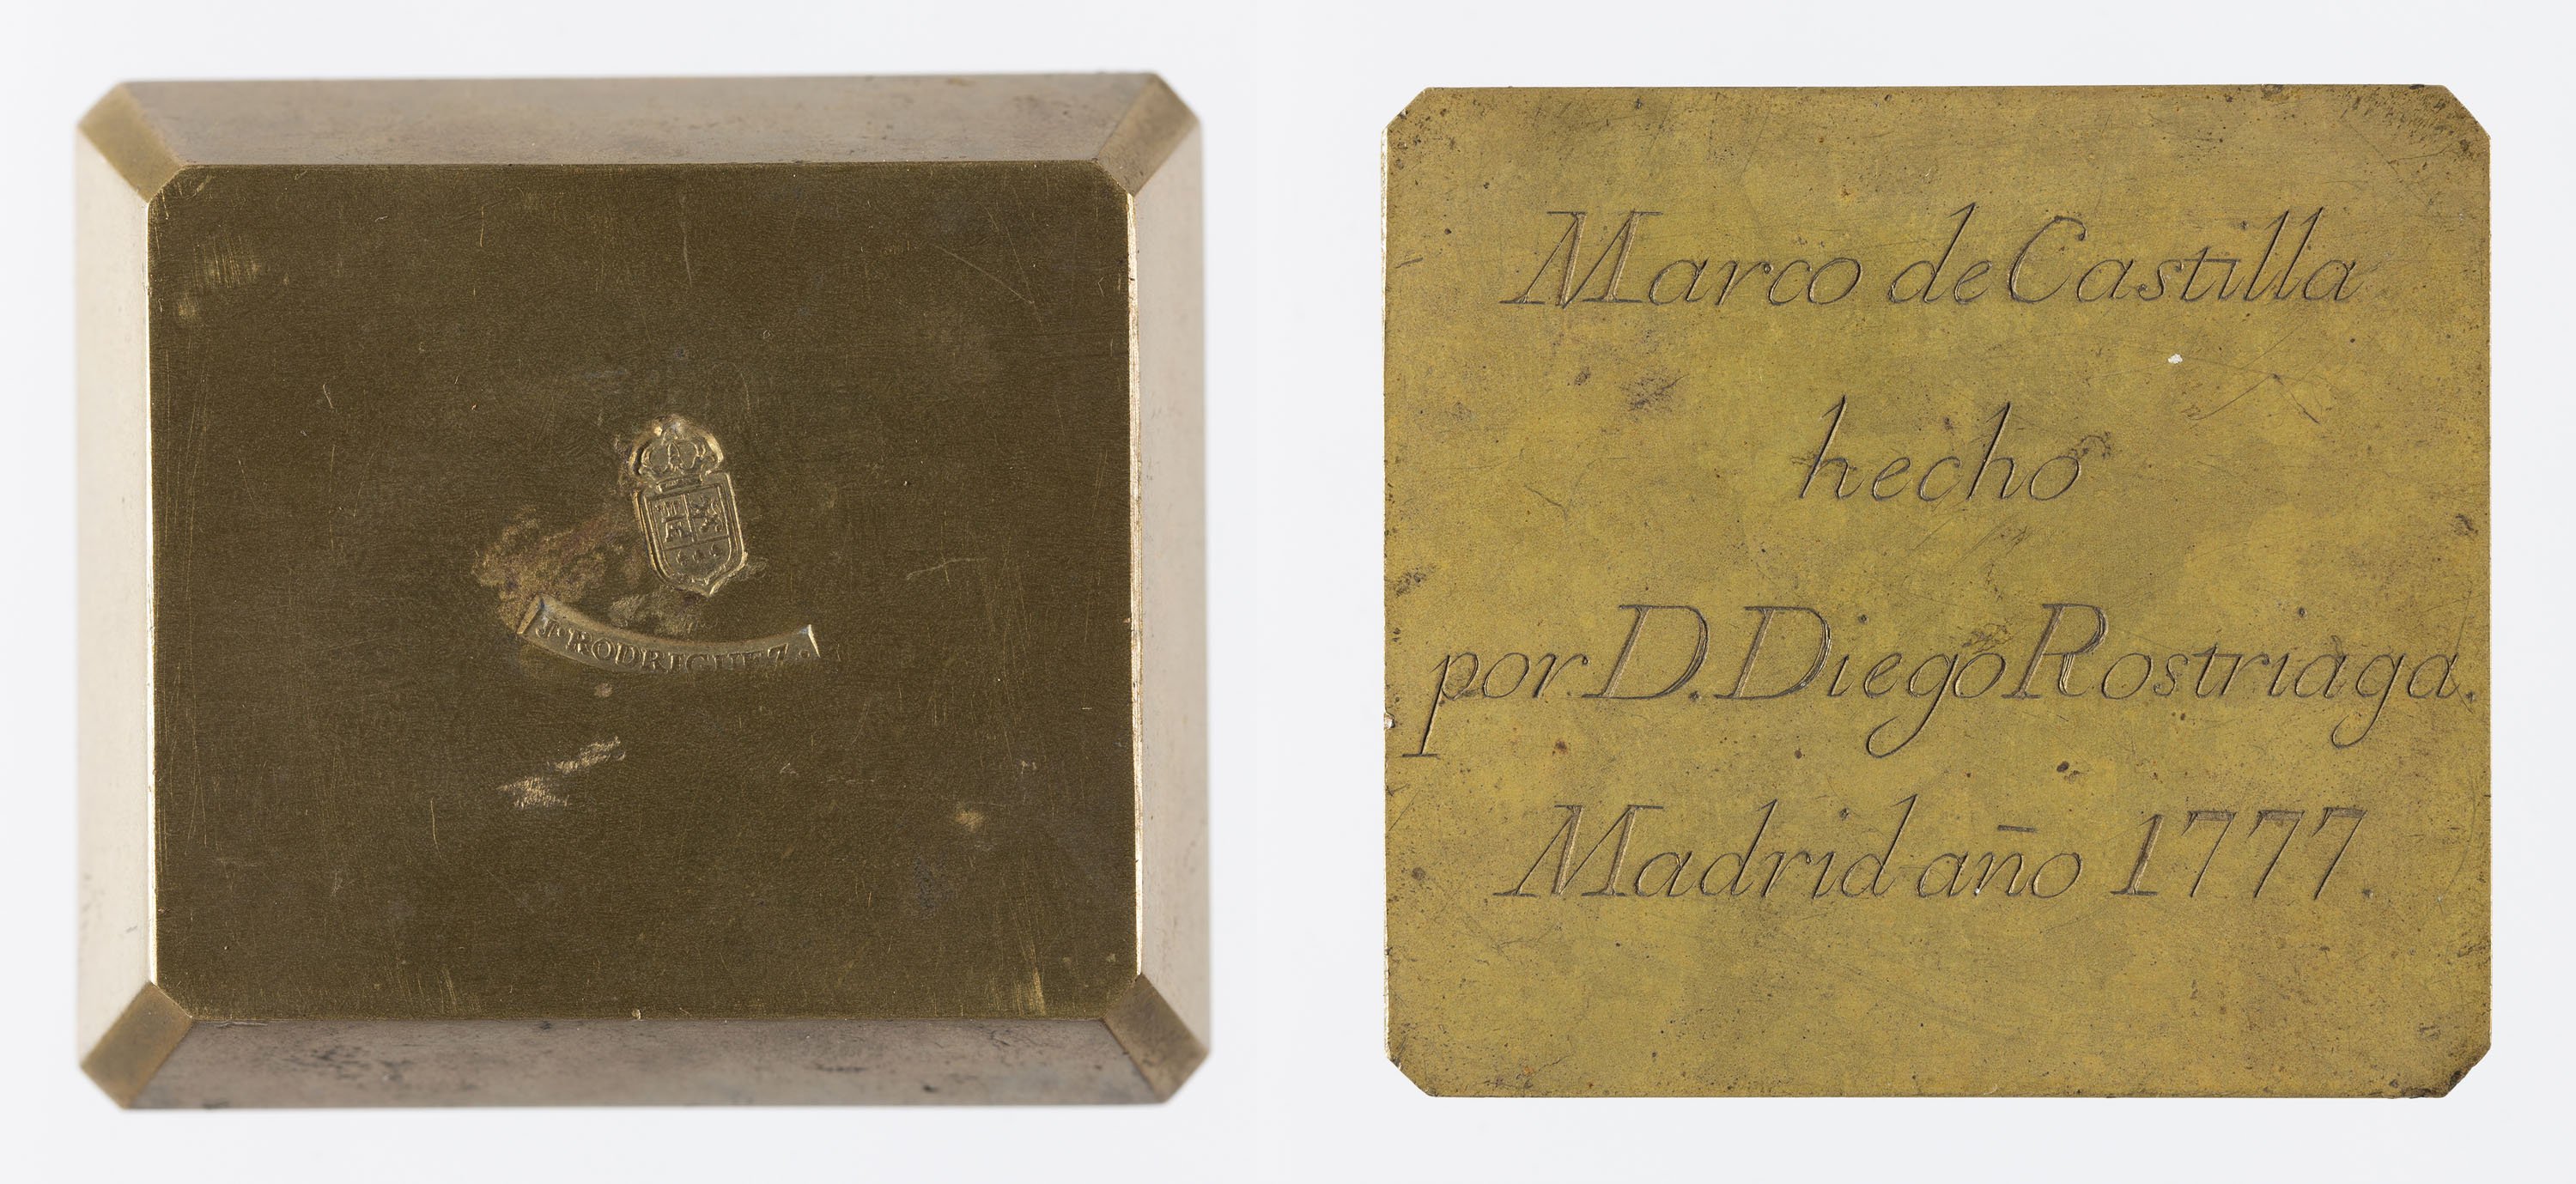 J. RODRIGUEZ.
Marco de Castilla
hecho
por D. Diego Rostriaga.
Madrid año 1777.